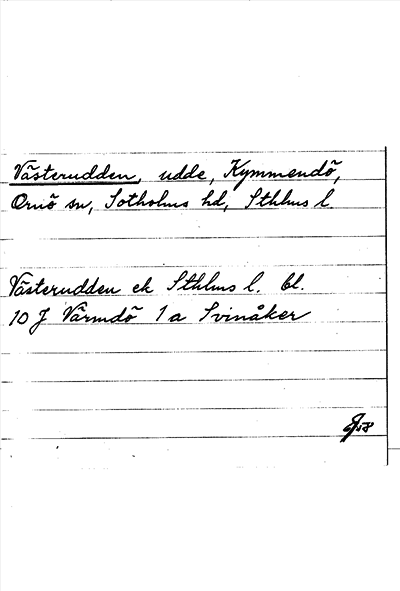 Västerudden, udde, Kymmendö,
Ornö sn, Sotholms hd, Sthlms l.
Västerudden ek Sthlms l. bl.
10 J Värmdö 1 a Svinåker